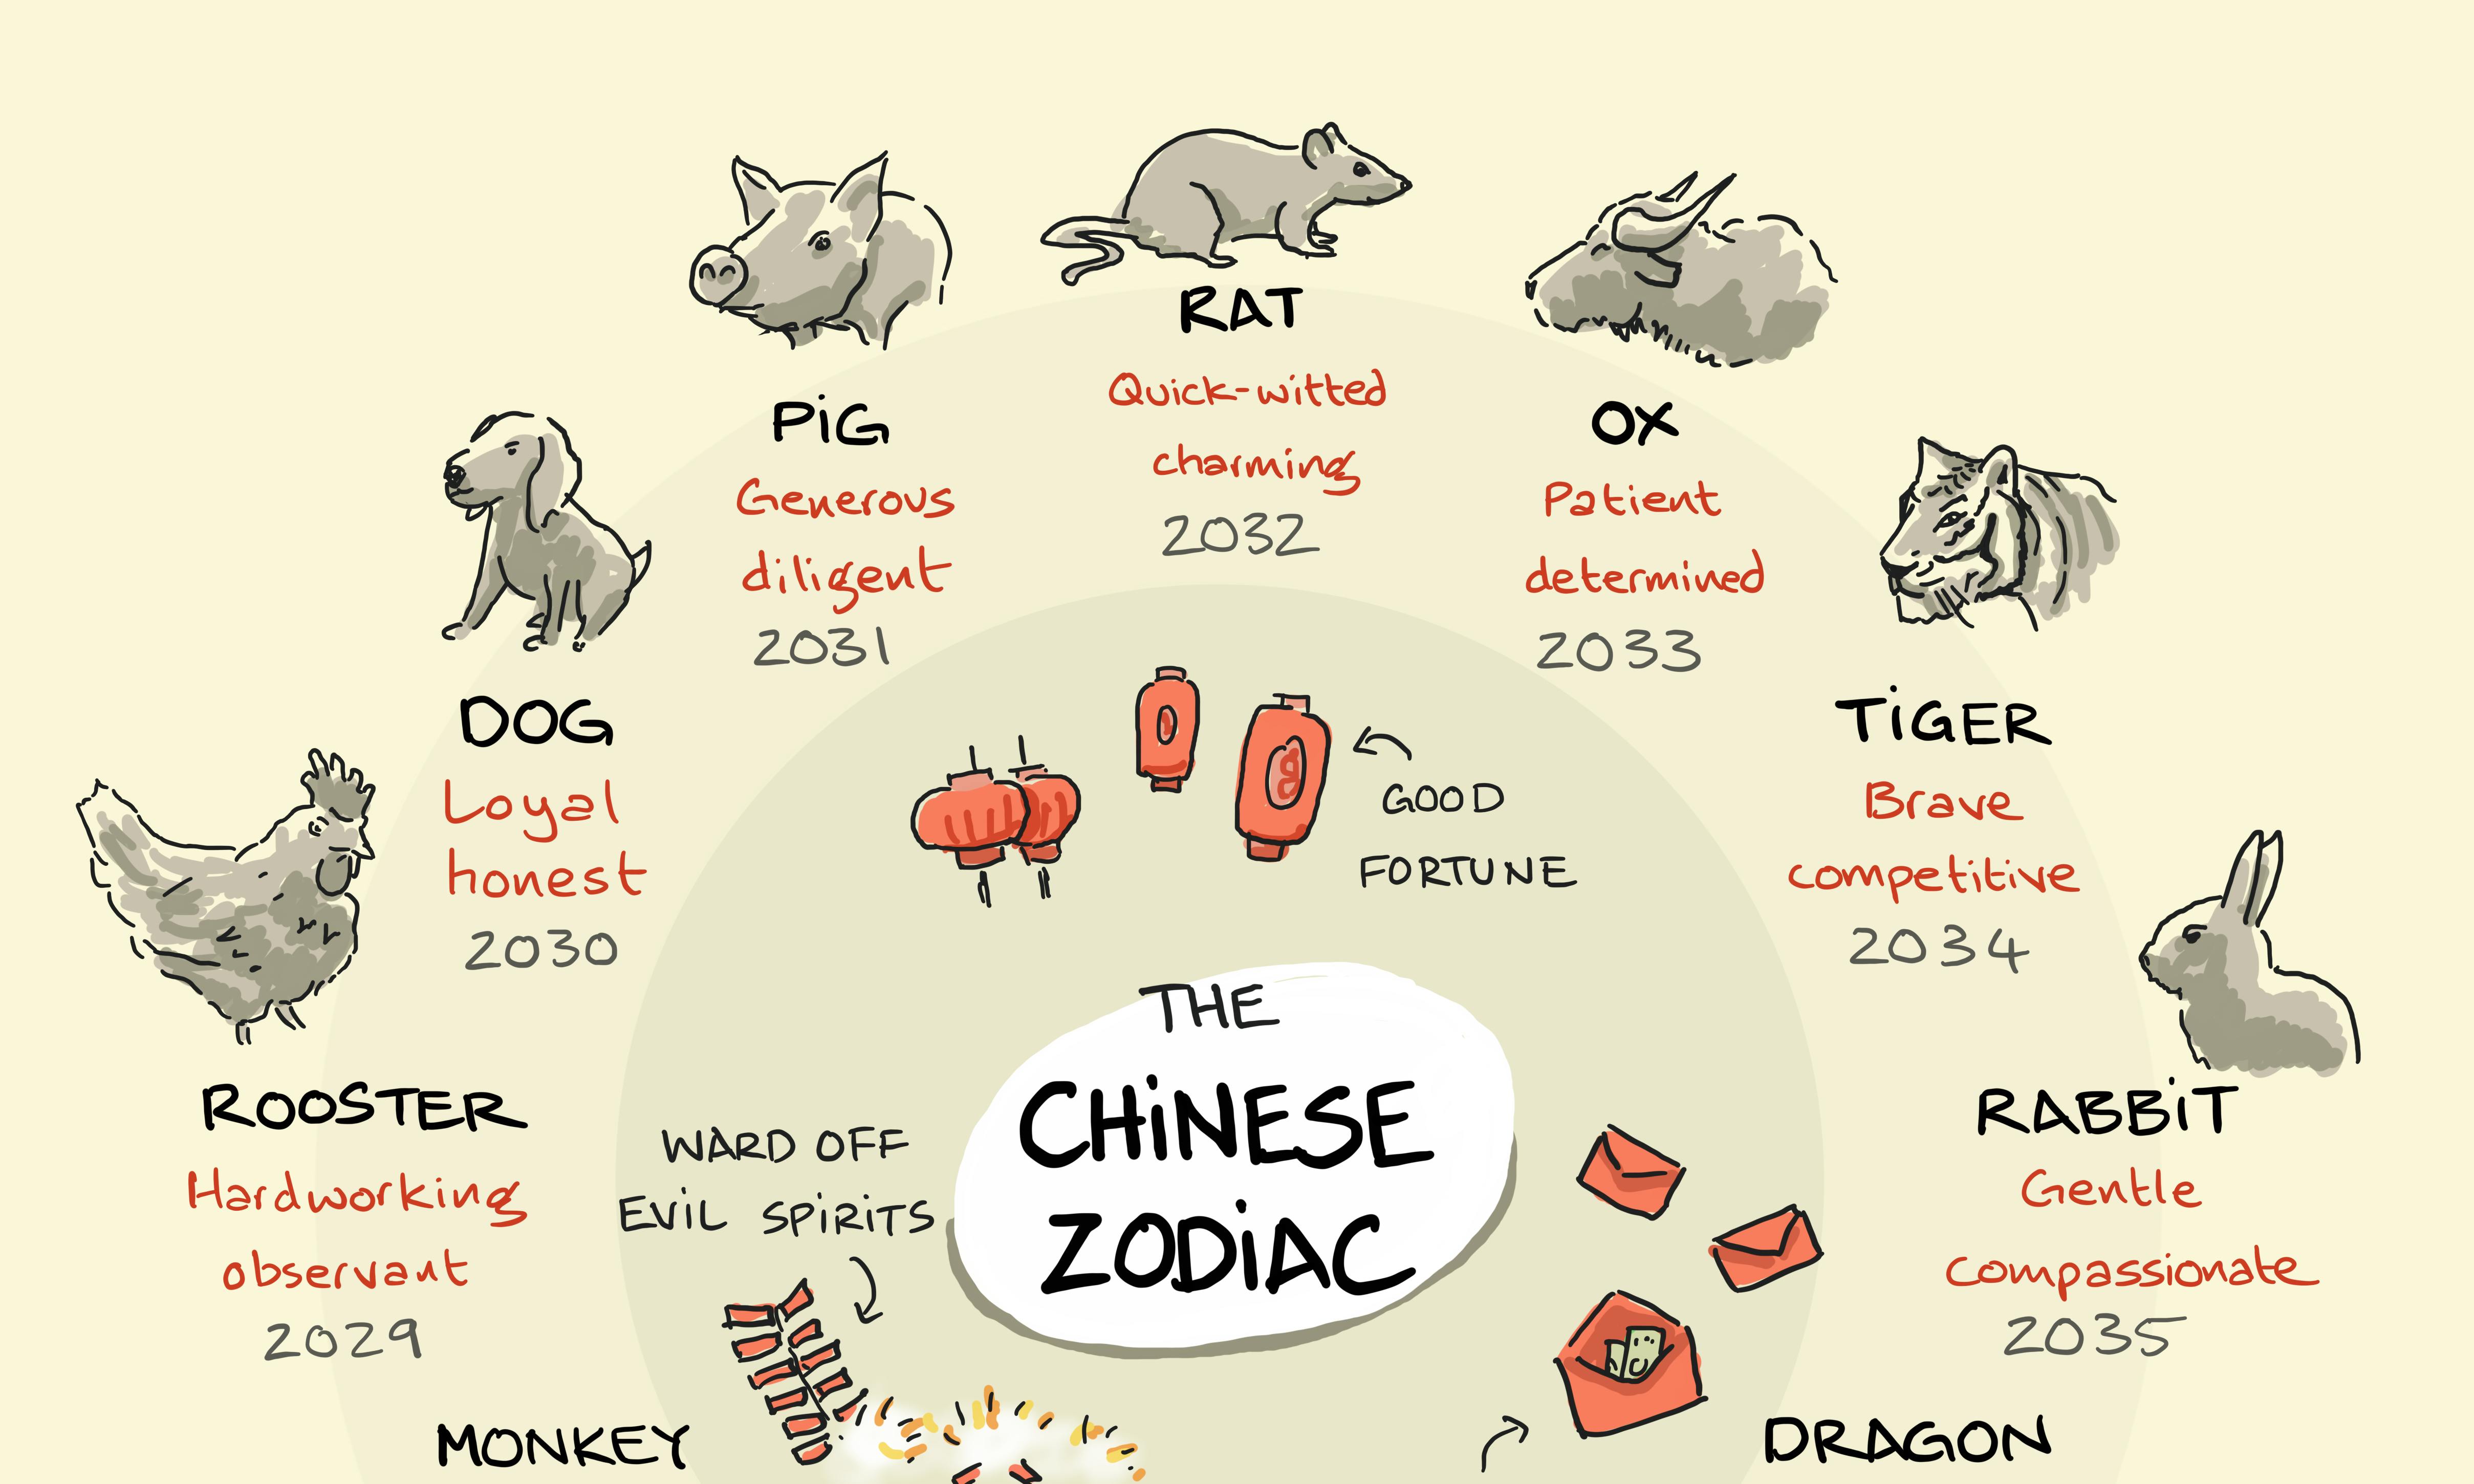 RAT
Quick-witted
charming
2032
PiG
Generous
diligent
2031
OX
Patient
determined
2033
DOG
Loyal
honest
2030
TiGER
Brave
competitive
2034
GOOD
FORTUNE
THE
CHiNESE
ZODiAC
ROOSTER
Hardworking
observant
2029
WARD OFF
EViL SPiRiTS
RABBiT
Gentle
Compassionate
2035
MONKEY
DRAGON